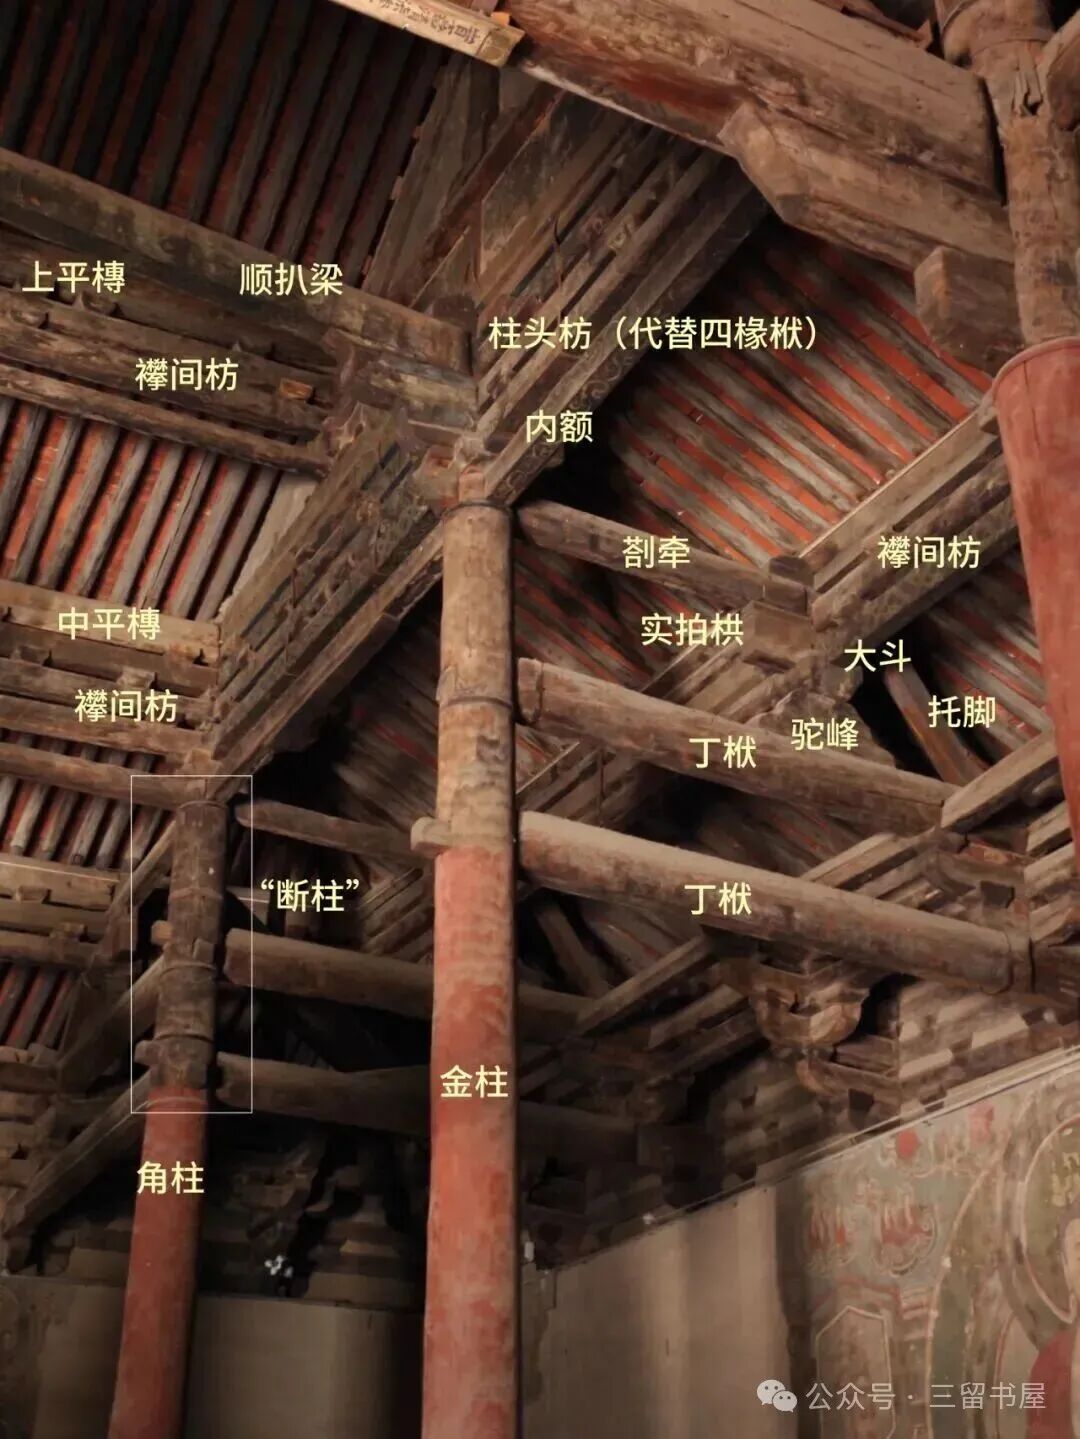 上平槫
顺扒梁
柱头枋（代替四椽栿）
襻间枋
内额
劄牵
襻间枋
中平槫
实拍栱
大斗
襻间枋
托脚
驼峰
丁栿
“断柱”
丁栿
金柱
角柱
公众号 · 三留书屋